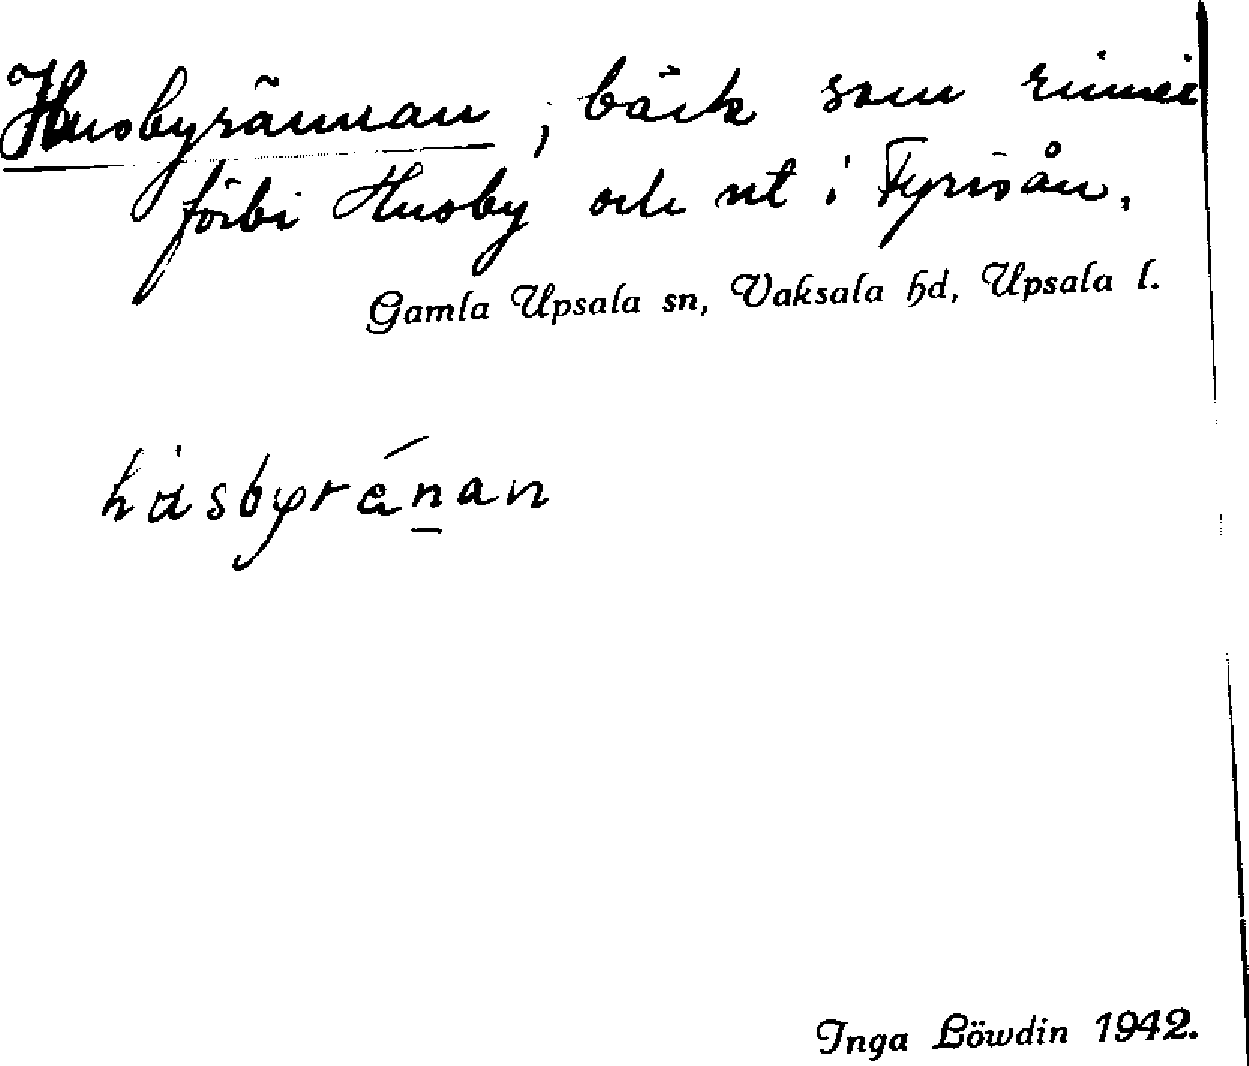 Husbyrännan, bäck som rinner
förbi Husby och ut i Fyrisån.
Gamla Upsala sn, Vaksala hd, Upsala l.
Inga Löwdin 1942.